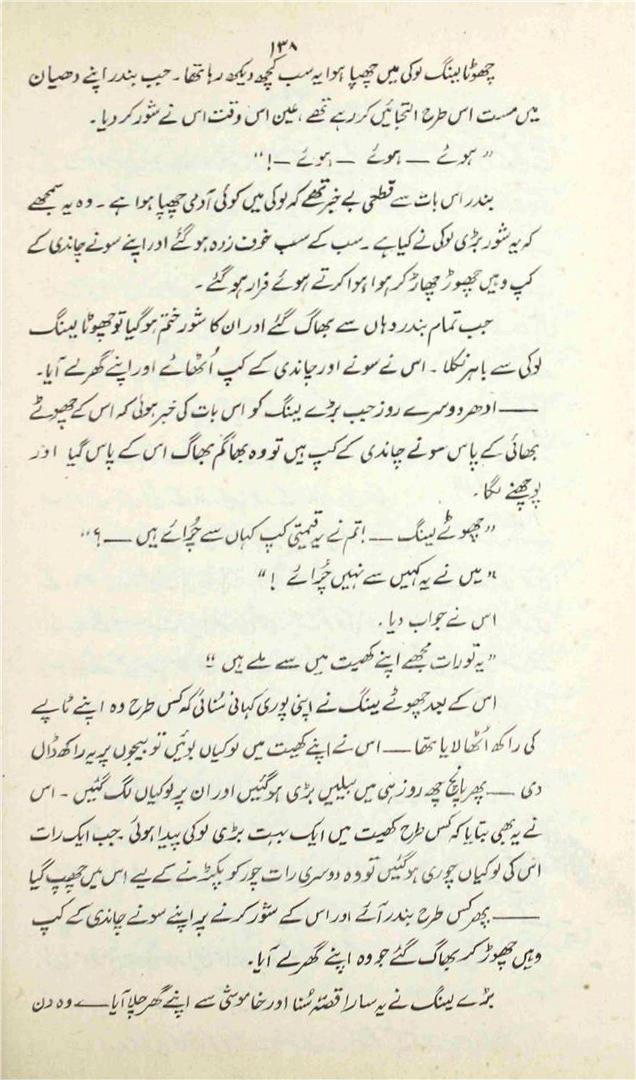 ۱۳۸
چھوٹا ینگ لوکی میں چھپا ہوا یہ سب کچھ دیکھ رہا تھا۔ جب بندر اپنے دھیان
میں مست اس طرح التجائیں کر رہے تھے، عین اس وقت اس نے شور کر دیا۔
"ہوئے — ہوئے — ہوئے —!"
بندر اس بات سے قطعی بے خبر تھے کہ لوکی میں کوئی آدمی چھپا ہوا ہے۔ وہ یہ سمجھے
کہ یہ شور بڑی لوکی نے کیا ہے۔ سب کے سب خوف زدہ ہو گئے اور اپنے سونے چاندی کے
کپ وہیں چھوڑ چھاڑ کر ہوا ہوا کرتے ہوئے فرار ہو گئے۔
جب تمام بندر وہاں سے بھاگ گئے اور ان کا شور ختم ہو گیا تو چھوٹا ینگ
لوکی سے باہر نکلا۔ اس نے سونے اور چاندی کے کپ اُٹھائے اور اپنے گھر لے آیا۔
— ادھر دوسرے روز جب بڑے ینگ کو اس بات کی خبر ہوئی کہ اس کے چھوٹے
بھائی کے پاس سونے چاندی کے کپ ہیں تو وہ بھاگم بھاگ اس کے پاس گیا اور
پوچھنے لگا۔
"چھوٹے ینگ —! تم نے یہ قیمتی کپ کہاں سے چُرائے ہیں —؟"
"میں نے یہ کہیں سے نہیں چُرائے!"
اس نے جواب دیا۔
"یہ تو رات مجھے اپنے کھیت میں سے ملے ہیں"
اس کے بعد چھوٹے ینگ نے اپنی پوری کہانی سُنائی کہ کس طرح وہ اپنے ٹاپے
کی راکھ اُٹھا لایا تھا — اس نے اپنے کھیت میں لوکیاں بوئیں تو بیجوں پر یہ راکھ ڈال
دی — پھر پانچ چھ روز ہی میں بیلیں بڑی ہو گئیں اور ان پر لوکیاں لگ گئیں۔ اس
نے یہ بھی بتایا کہ کس طرح کھیت میں ایک بہت بڑی لوکی پیدا ہوئی۔ جب ایک رات
اس کی لوکیاں چوری ہو گئیں تو وہ دوسری رات چور کو پکڑنے کے لیے اس میں چھپ گیا
— پھر کس طرح بندر آئے اور اس کے شور کرنے پر اپنے سونے چاندی کے کپ
وہیں چھوڑ کر بھاگ گئے جو وہ اپنے گھر لے آیا۔
بڑے ینگ نے یہ سارا قصّہ سُنا اور خاموشی سے اپنے گھر چلا آیا — وہ دن